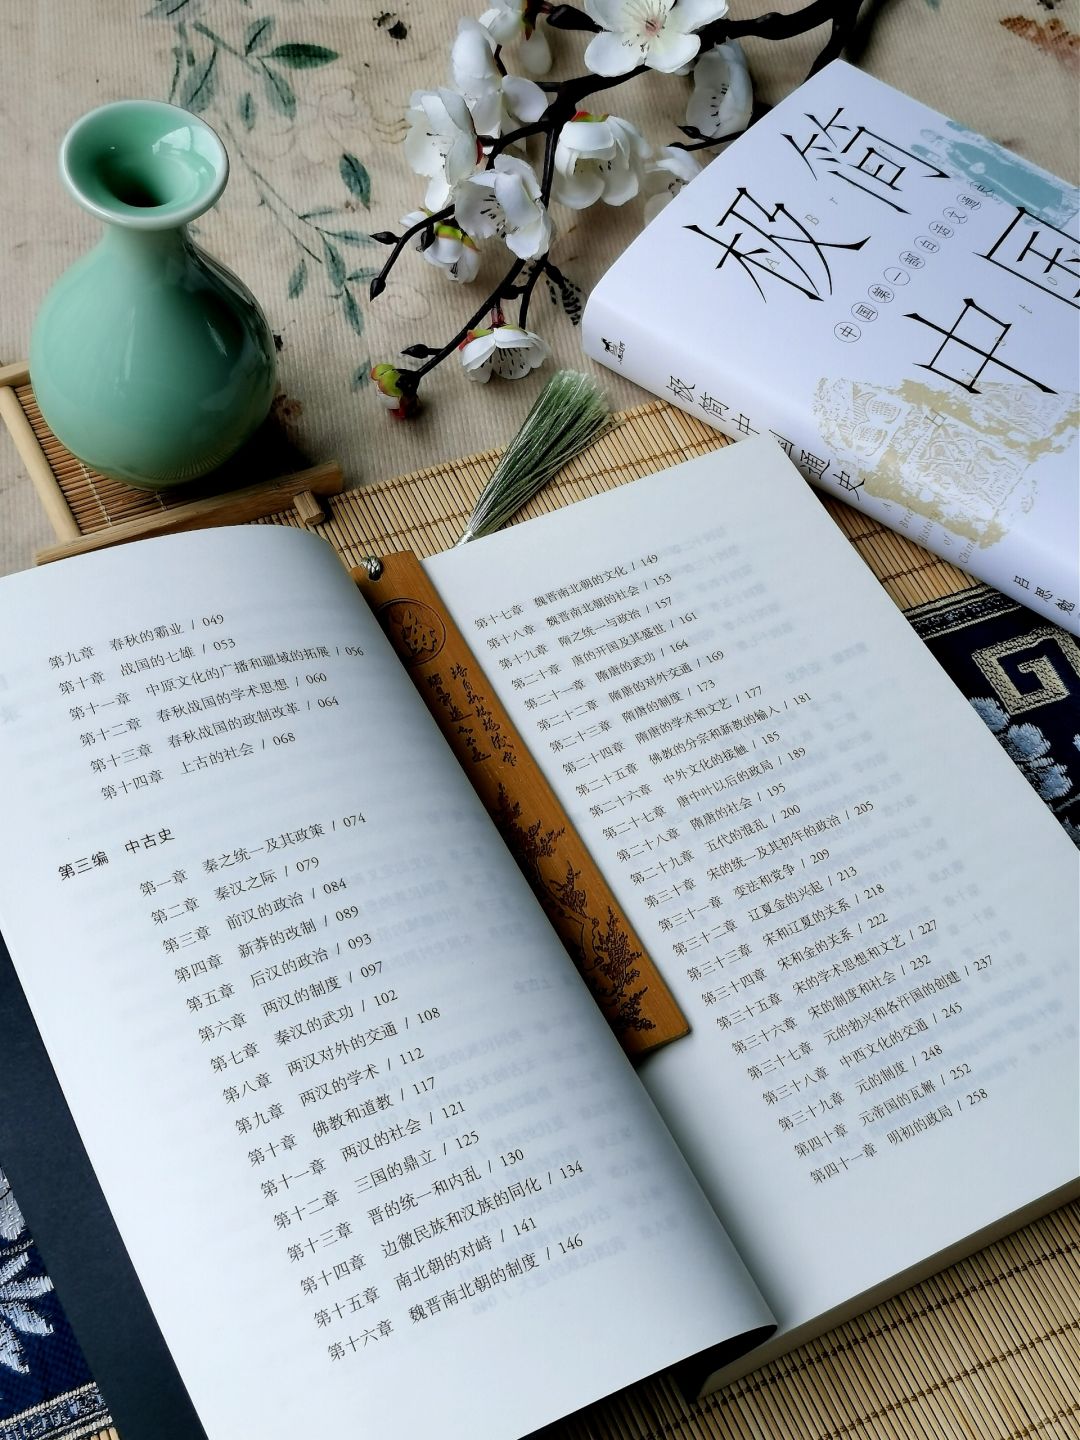 极简
中国
中国第一部白话文通史
极简中国通史
A Brief History of China
吕思勉
第九章 春秋的霸业 / 049
第十章 战国的七雄 / 053
第十一章 中原文化的广播和疆域的拓展 / 056
第十二章 春秋战国的学术思想 / 060
第十三章 春秋战国的政制改革 / 064
第十四章 上古的社会 / 068
第三编 中古史
第一章 秦之统一及其政策 / 074
第二章 秦汉之际 / 079
第三章 前汉的政治 / 084
第四章 新莽的改制 / 089
第五章 后汉的政治 / 093
第六章 两汉的制度 / 097
第七章 秦汉的武功 / 102
第八章 两汉对外的交通 / 108
第九章 两汉的学术 / 112
第十章 佛教和道教 / 117
第十一章 两汉的社会 / 121
第十二章 三国的鼎立 / 125
第十三章 晋的统一和内乱 / 130
第十四章 边徼民族和汉族的同化 / 134
第十五章 南北朝的对峙 / 141
第十六章 魏晋南北朝的制度 / 146
第十七章 魏晋南北朝的文化 / 149
第十八章 魏晋南北朝的社会 / 153
第十九章 隋之统一与政治 / 157
第二十章 唐的开国及其盛世 / 161
第二十一章 隋唐的武功 / 164
第二十二章 隋唐的对外交通 / 169
第二十三章 隋唐的制度 / 173
第二十四章 隋唐的学术和文艺 / 177
第二十五章 佛教的分宗和新教的输入 / 181
第二十六章 中外文化的接触 / 185
第二十七章 唐中叶以后的政局 / 189
第二十八章 隋唐的社会 / 195
第二十九章 五代的混乱 / 200
第三十章 宋的统一及其初年的政治 / 205
第三十一章 变法和党争 / 209
第三十二章 辽夏金的兴起 / 213
第三十三章 宋和辽夏的关系 / 218
第三十四章 宋和金的关系 / 222
第三十五章 宋的学术思想和文艺 / 227
第三十六章 宋的制度和社会 / 232
第三十七章 元的勃兴和各汗国的创建 / 237
第三十八章 中西文化的交通 / 245
第三十九章 元的制度 / 248
第四十章 元帝国的瓦解 / 252
第四十一章 明初的政局 / 258